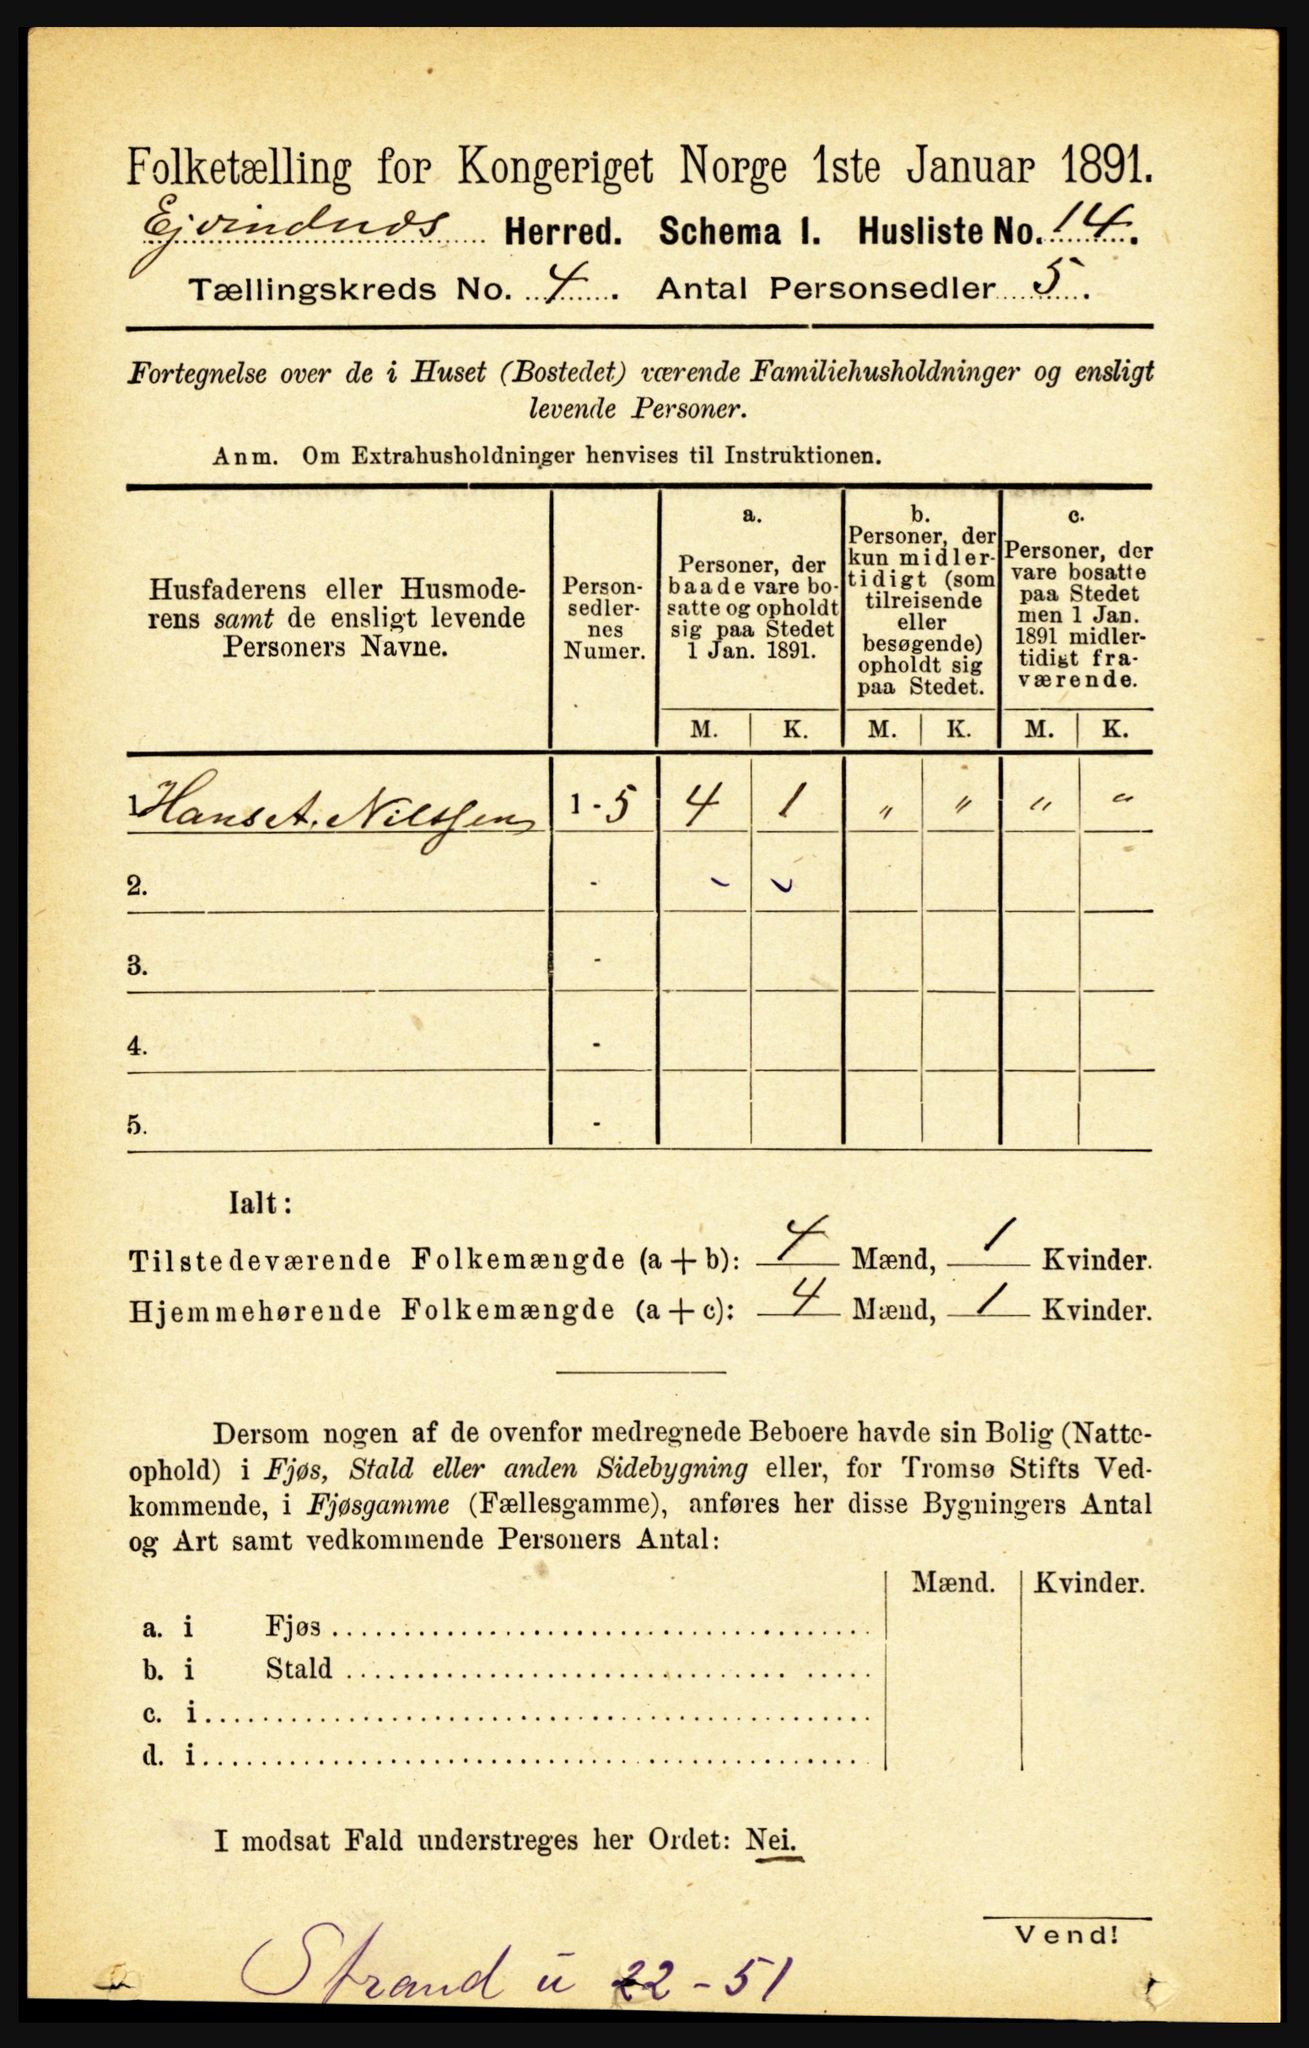 Folketælling for Kongeriget Norge 1ste Januar 1891.
Ejvindvds Herred. Schema I. Husliste No. 14.
Tællingskreds No. 4. Antal Personsedler 5.
Fortegnelse over de i Huset (Bostedet) værende Familiehusholdninger og ensligt
levende Personer.
Anm. Om Extrahusholdninger henvises til Instruktionen.
Husfaderens eller Husmode-
rens samt de ensligt levende
Personers Navne.
Person-
sedler-
nes
Numer.
a.
Personer, der
baade vare bo-
satte og opholdt
sig paa Stedet
1 Jan. 1891.
b.
Personer, der
kun midler-
tidigt (som
tilreisende
eller
besøgende)
opholdt sig
paa Stedet.
c.
Personer, der
vare bosatte
paa Stedet
men 1 Jan.
1891 midler-
tidigt fra-
værende.
M. K. M. K. M. K.
1. Hans A. Nilssen 1 - 5 4 1 " " " "
2. -
3. -
4. -
5. -
Ialt:
Tilstedeværende Folkemængde (a + b): 4 Mænd, 1 Kvinder.
Hjemmehørende Folkemængde (a + c): 4 Mænd, 1 Kvinder.
Dersom nogen af de ovenfor medregnede Beboere havde sin Bolig (Natte-
ophold) i Fjøs, Stald eller anden Sidebygning eller, for Tromsø Stifts Ved-
kommende, i Fjøsgamme (Fællesgamme), anføres her disse Bygningers Antal
og Art samt vedkommende Personers Antal:
Mænd. Kvinder.
a. i Fjøs
b. i Stald
c. i
d. i
I modsat Fald understreges her Ordet: Nei.
Vend!
Strand u 22-51